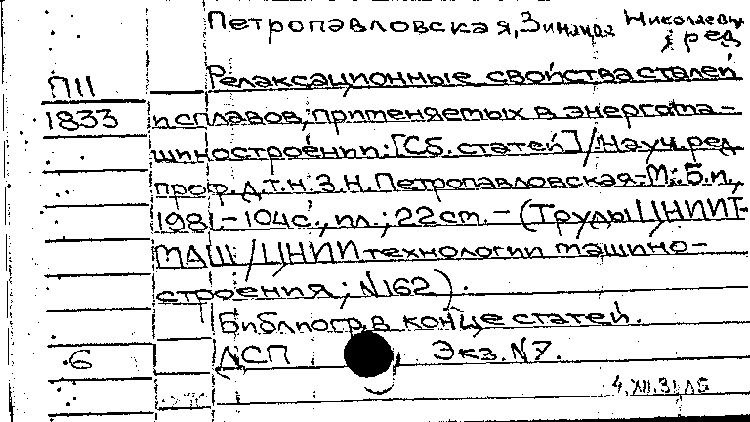 Петропавловская, Зинаида Николаевна
ред
П11
Релаксационные свойства сталей
1833
и сплавов, применяемых в энергома-
шиностроении: [Сб. статей] / Науч. ред.
проф. д.т.н. З.Н. Петропавловская.- М.: Б.и.,
1981.- 104с., ил.; 22 см. - (Труды ЦНИИТ-
МАШ / ЦНИИ технологии машино-
строения; N162).
Библиогр. в конце статей.
6
ЛСП Экз. N7.